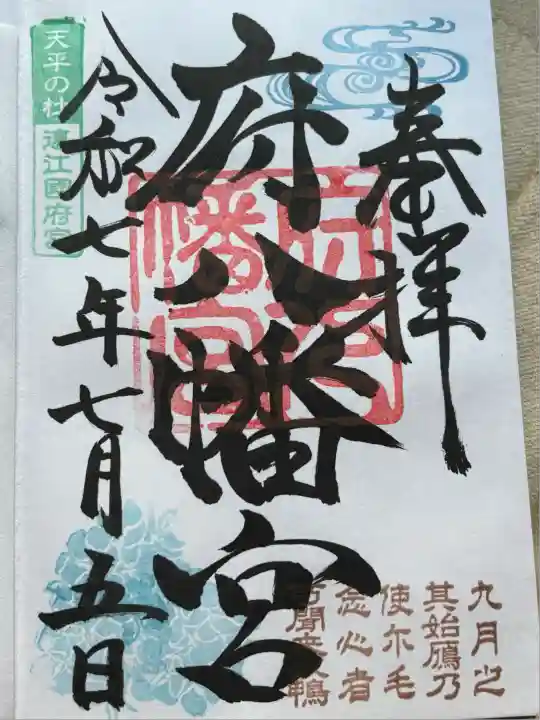 奉拝
府八幡宮
令和七年七月五日
天平の杜
遠江國府宮
府八
幡宮
九月之
其始鴈乃
使尓毛
念心者
可聞来奴鴨